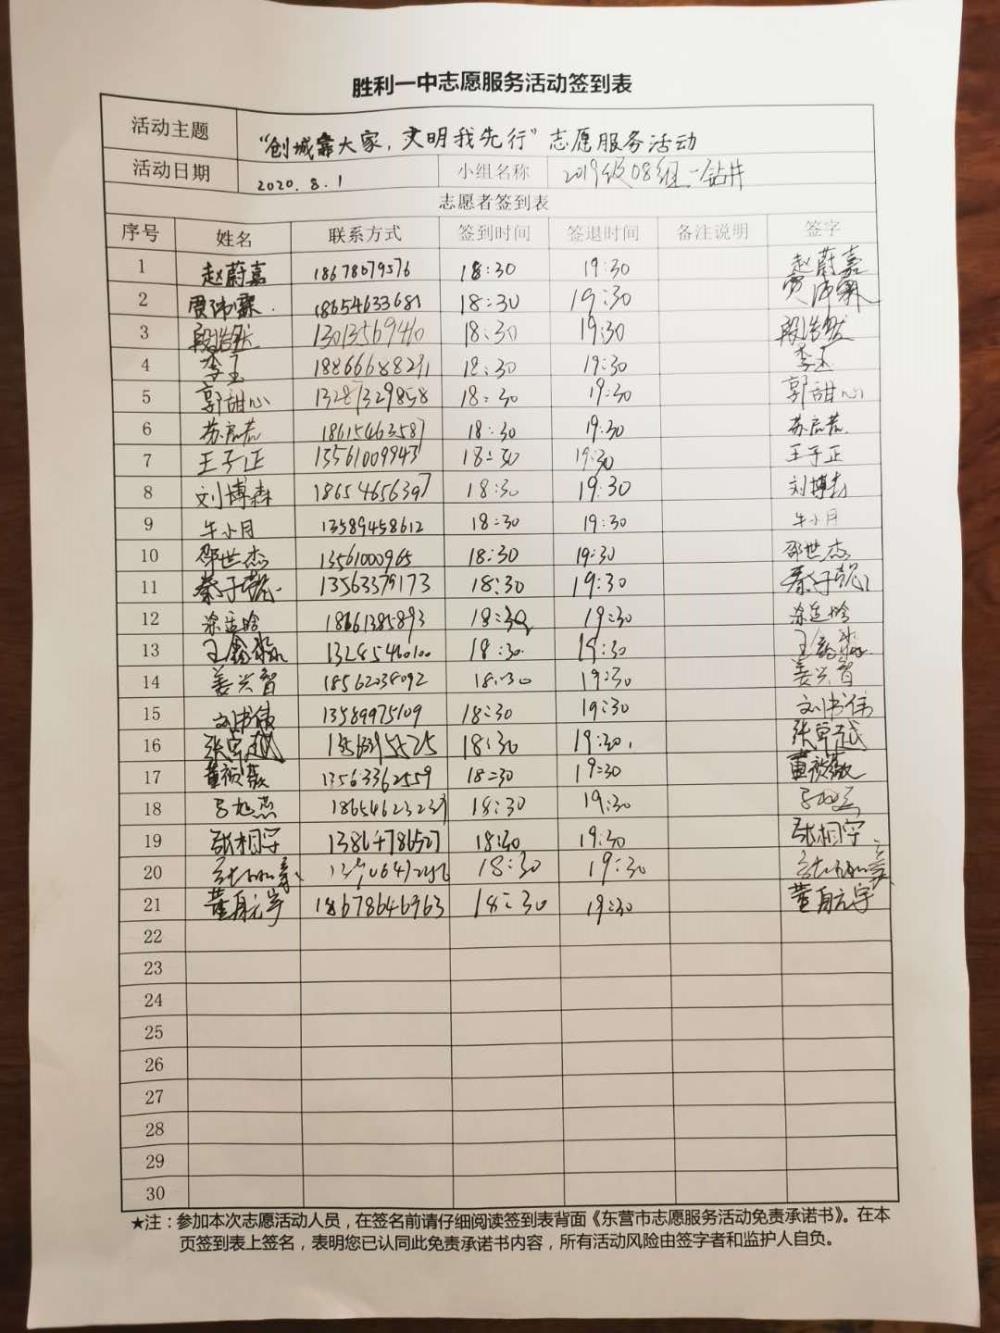 胜利一中志愿服务活动签到表
活动主题 "创城靠大家，文明我先行"志愿服务活动
活动日期 2020.8.1 小组名称 2019级08组一钻井
志愿者签到表
序号 姓名 联系方式 签到时间 签退时间 备注说明 签字
1 赵蔚嘉 18678679576 18:30 19:30 赵蔚嘉
2 18654633681 18:30 19:30
3 18:30 19:30
4 李玉 18:30 19:30 李玉
5 郭甜心 13287329858 18:30 19:30 郭甜心
6 18615463587 18:30 19:30
7 王子正 13561009943 18:30 19:30 王子正
8 刘博森 18654656397 18:30 19:30 刘博森
9 牛小月 13589458612 18:30 19:30 牛小月
10 邵世杰 13561000965 18:30 19:30 邵世杰
11 13563379173 18:30 19:30
12 18661385893 18:30 19:30
13 王鑫淼 13285460100 18:30 19:30 王鑫淼
14 姜兴智 18562038092 18:30 19:30 姜兴智
15 刘书伟 13589975109 18:30 19:30 刘书伟
16 张卓越 18:30 19:30 张卓越
17 董祯薇 13563362559 18:30 19:30 董祯薇
18 18654623237 18:30 19:30
19 张相宇 18:30 19:30 张相宇
20 18:30 19:30
21 18678646963 18:30 19:30
22
23
24
25
26
27
28
29
30
★注：参加本次志愿活动人员，在签名前请仔细阅读签到表背面《东营市志愿服务活动免责承诺书》。在本
页签到表上签名，表明您已认同此免责承诺书内容，所有活动风险由签字者和监护人自负。